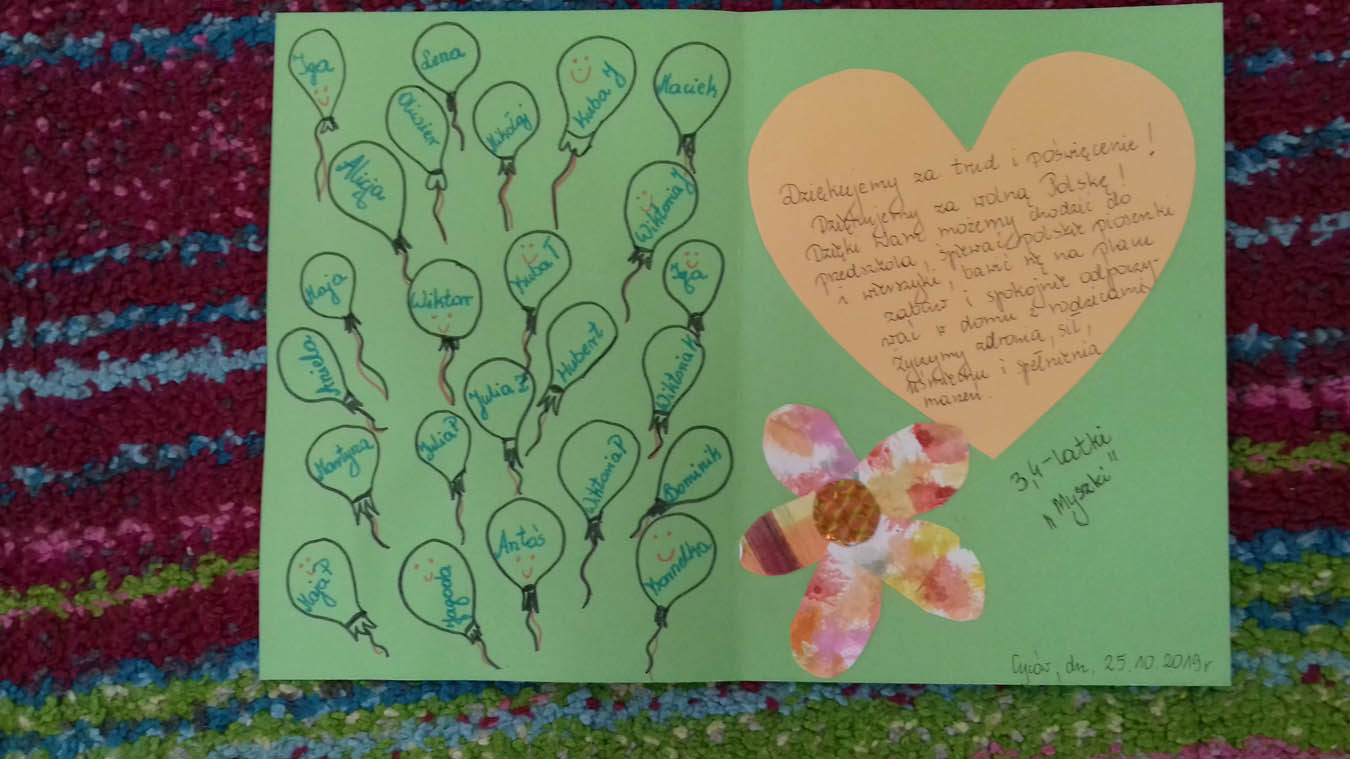 Iga
Lena
Oliwier
Mikołaj
Kuba J
Maciek
Alicja
Wiktoria J
Maja
Wiktor
Kuba T
Iga
Aniela
Julia Z
Hubert
Wiktoria K
Martyna
Julia P
Wiktoria P
Dominik
Maja P
Jagoda
Antoś
Kornelka
Dziękujemy za trud i poświęcenie!
Dziękujemy za wolną Polskę!
Dzięki Wam możemy chodzić do
przedszkola, śpiewać polskie piosenki
i wierszyki, bawić się na placu
zabaw i spokojnie odpoczy-
wać w domu z rodzicami
Życzymy zdrowia, sił,
uśmiechu i spełnienia
marzeń.
3,4-latki
"Myszki"
Cyców, dn. 25.10.2019r